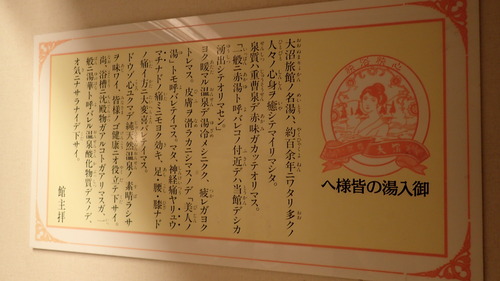 御入湯の皆様へ
大沼旅館ノ名湯ハ、約百余年ニワタリ多クノ
人々ノ心身ヲ癒シテマイリマシタ。
泉質ハ重曹泉デ赤味ガカッテオリマス。
一般ニ赤湯ト呼バレコノ付近デハ当館デシカ
湧出シテオリマセン。
ヨク暖マル温泉デ湯冷メシニクク、疲レガヨク
トレマス。皮膚ヲ滑ラカニシマスノデ「美人ノ
湯」トモ呼バレテイマス。マタ、神経痛ヤリュウ
マチナドノ痛ミニモヨク効キ、足、腰、膝ナド
ノ痛イ方ニ大変喜バレテイマス。
ドウゾ心ユクマデ純天然温泉ノ素晴ラシサ
ヲ味ワイ、皆様ノゴ健康ニオ役立テ下サイ。
尚、浴槽ニ沈殿物ガアルコトガアリマスガ、一
般ニ湯華ト呼バレル温泉酸化物質デスノデ、
オ気ニナサラナイデ下サイ。
館主拝